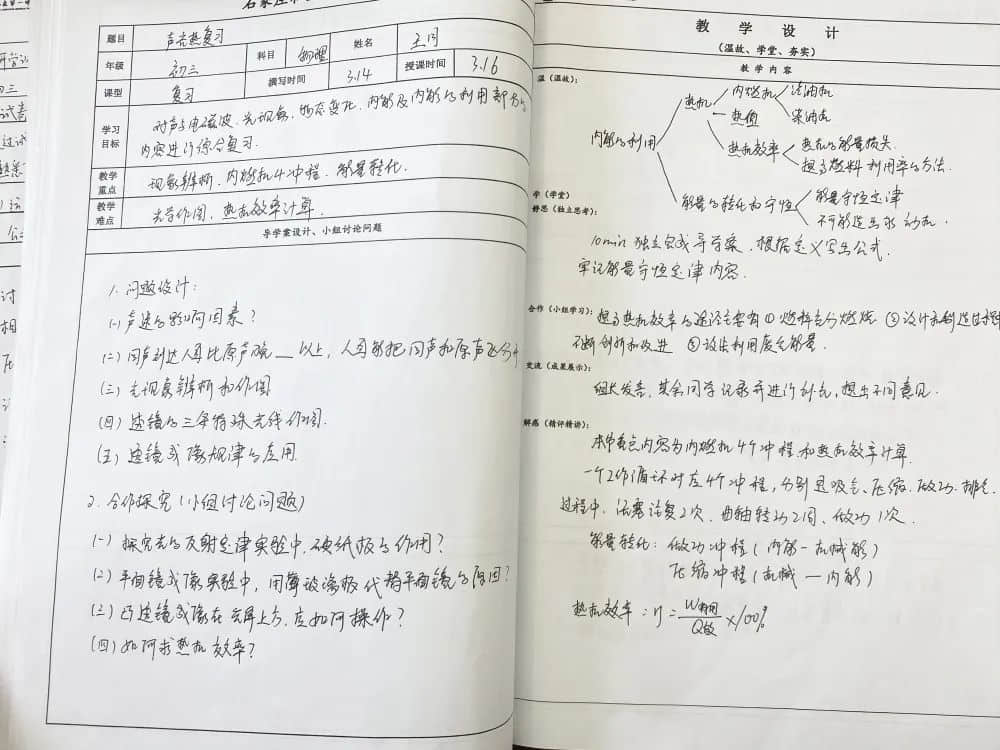 题目 声光热复习
年级 初三 科目 物理 姓名 王闫
课型 复习 撰写时间 3.14 授课时间 3.16
学习目标 对声与电磁波、光现象、物态变化、内能及内能的利用部分的
内容进行综合复习.
教学重点 现象辨析、内燃机4冲程、能量转化.
教学难点 光学作图，热机效率计算.
导学案设计、小组讨论问题
1. 问题设计：
(一) 声速的影响因素？
(二) 回声到达人耳比原声晚__以上，人耳能把回声和原声区分开
(三) 光现象辨析和作图
(四) 透镜的三条特殊光线作图.
(五) 透镜成像规律的应用.
2. 合作探究（小组讨论问题）
(一) 探究光的反射定律实验中，硬纸板的作用？
(二) 平面镜成像实验中，用薄玻璃板代替平面镜的原因？
(三) 凸透镜成像在光屏上方，应如何操作？
(四) 如何求热机效率？
教 学 设 计
（温故、学堂、夯实）
教 学 内 容
温（温故）：
内能的利用
热机
内燃机
汽油机
柴油机
热值
热机效率
热机的能量损失
提高燃料利用率的方法.
能量的转化和守恒
能量守恒定律
不可能造出永动机.
学（学堂）
静思（独立思考）：
10min 独立完成导学案，根据定义写出公式.
牢记能量守恒定律内容.
合作（小组学习）：提高热机效率的途径主要有 ① 燃料充分燃烧 ② 设计和制造过程中
不断创新和改进 ③ 设法利用废气能量.
交流（成果展示）：
组长发言，其余同学记录并进行补充，提出不同意见.
解惑（精评精讲）：
本节重点内容为内燃机4个冲程和热机效率计算.
一个工作循环对应4个冲程，分别是吸气、压缩、做功、排气.
过程中，活塞往复2次、曲轴转动2周、做功1次.
能量转化：做功冲程（内能—机械能）
压缩冲程（机械—内能）
热机效率：η = W有用/Q放 ×100%